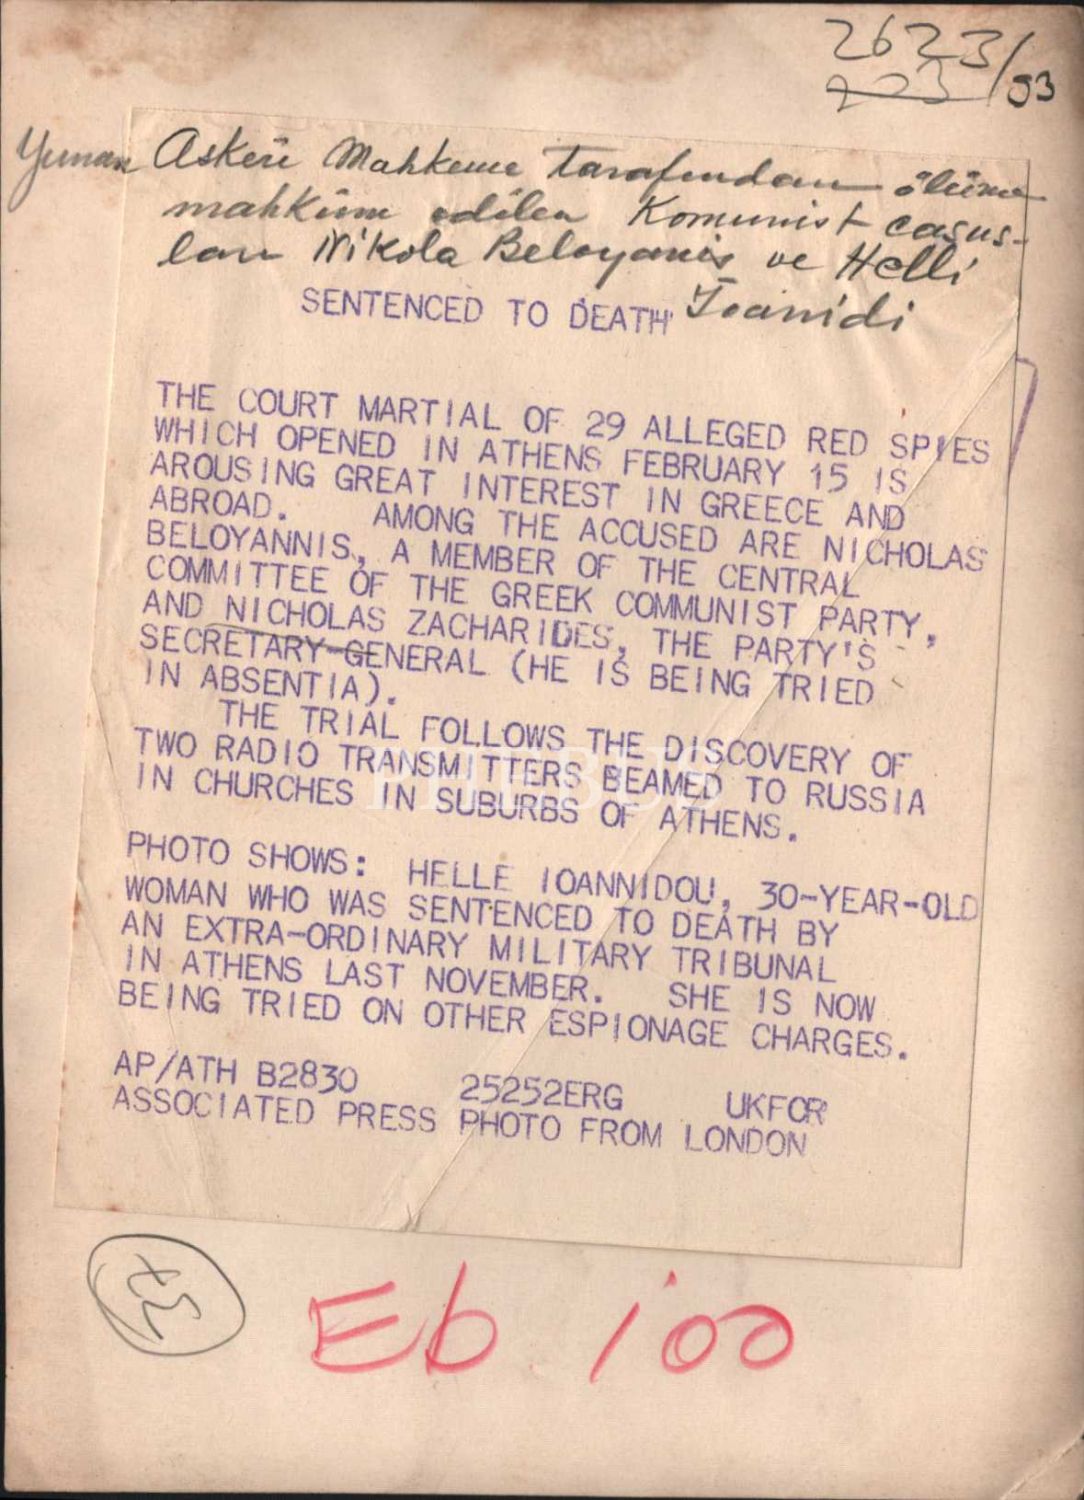 2623/53
223
Yunan Askeri Mahkeme tarafından ölüme
mahkûm edilen Komunist casus-
ları Nikola Beloyanis ve Helli
İoanidi
SENTENCED TO DEATH
THE COURT MARTIAL OF 29 ALLEGED RED SPIES
WHICH OPENED IN ATHENS FEBRUARY 15 IS
AROUSING GREAT INTEREST IN GREECE AND
ABROAD. AMONG THE ACCUSED ARE NICHOLAS
BELOYANNIS, A MEMBER OF THE CENTRAL
COMMITTEE OF THE GREEK COMMUNIST PARTY,
AND NICHOLAS ZACHARIDES, THE PARTY'S
SECRETARY-GENERAL (HE IS BEING TRIED
IN ABSENTIA).
THE TRIAL FOLLOWS THE DISCOVERY OF
TWO RADIO TRANSMITTERS BEAMED TO RUSSIA
IN CHURCHES IN SUBURBS OF ATHENS.
PHOTO SHOWS: HELLE IOANNIDOU, 30-YEAR-OLD
WOMAN WHO WAS SENTENCED TO DEATH BY
AN EXTRA-ORDINARY MILITARY TRIBUNAL
IN ATHENS LAST NOVEMBER. SHE IS NOW
BEING TRIED ON OTHER ESPIONAGE CHARGES.
AP/ATH B2830 25252ERG UKFOR
ASSOCIATED PRESS PHOTO FROM LONDON
Eb 100